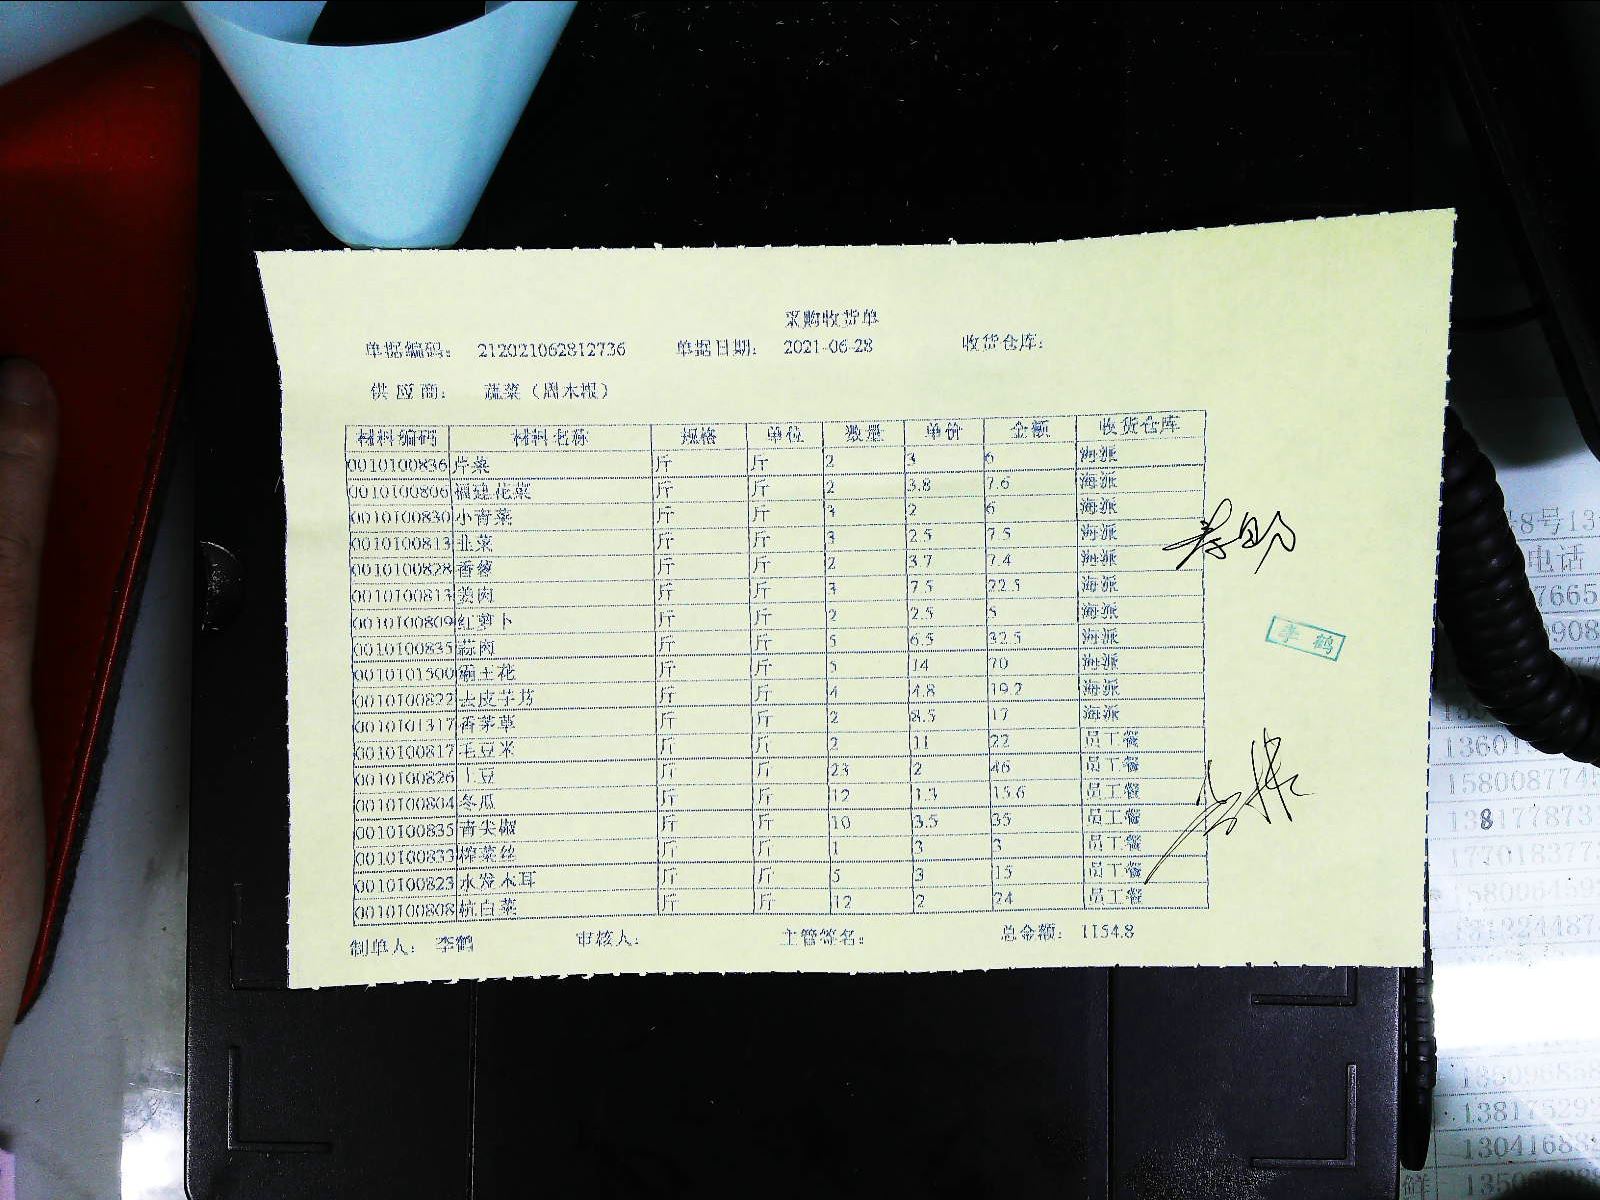 采购收货单
单据编码： 212021062812736 单据日期： 2021-06-28 收货仓库：
供应商： 蔬菜（周木根）
材料编码 材料名称 规格 单位 数量 单价 金额 收货仓库
0010100836 芹菜 斤 斤 2 3 6 海派
0010100806 福建花菜 斤 斤 2 3.8 7.6 海派
0010100830 小青菜 斤 斤 3 2 6 海派
0010100813 韭菜 斤 斤 3 2.5 7.5 海派
0010100828 香蓉 斤 斤 2 3.7 7.4 海派
0010100813 姜肉 斤 斤 3 7.5 22.5 海派
0010100809 红萝卜 斤 斤 2 2.5 5 海派
0010100835 蒜肉 斤 斤 5 6.5 32.5 海派
0010101500 霸王花 斤 斤 5 14 70 海派
0010100822 去皮芋艿 斤 斤 4 4.8 19.2 海派
0010101317 香茅草 斤 斤 2 8.5 17 海派
0010100817 毛豆米 斤 斤 2 11 22 员工餐
0010100826 土豆 斤 斤 23 2 46 员工餐
0010100804 冬瓜 斤 斤 12 1.3 15.6 员工餐
0010100835 青尖椒 斤 斤 10 3.5 35 员工餐
0010100833 榨菜丝 斤 斤 1 3 3 员工餐
0010100823 水发木耳 斤 斤 5 3 15 员工餐
0010100808 杭白菜 斤 斤 12 2 24 员工餐
制单人： 李鹤 审核人： 主管签名： 总金额： 1154.8
李鹤
8号13
电话
7665
908
13601
1580087745
138177873